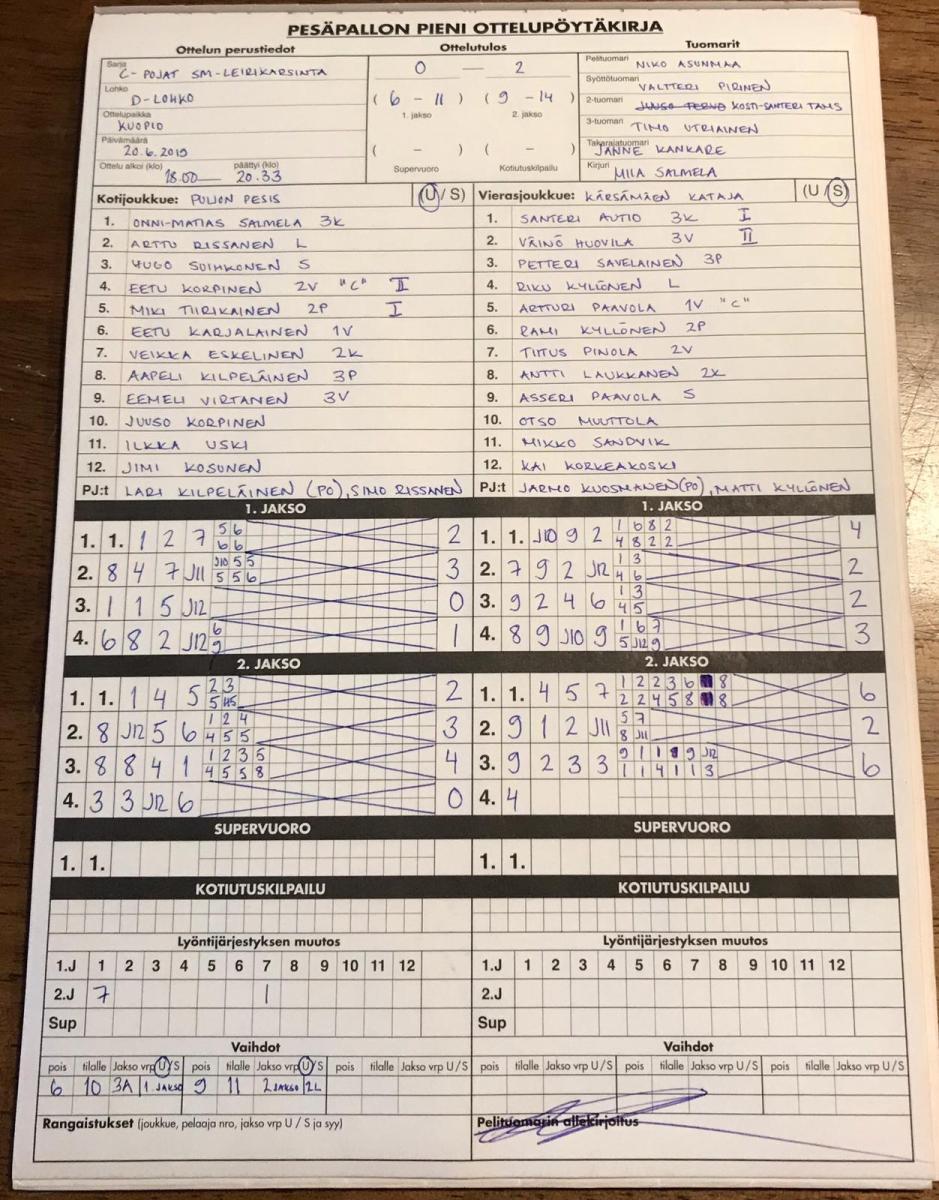 PESÄPALLON PIENI OTTELUPÖYTÄKIRJA
Ottelun perustiedot Ottelutulos Tuomarit
Sarja C-POJAT SM-LEIRIKARSINTA
Lohko D-LOHKO
Ottelupaikka KUOPIO
Päivämäärä 20.6.2019
Ottelu alkoi (klo) 18.00 päättyi (klo) 20.33
0 — 2
( 6 - 11 ) ( 9 - 14 )
1. jakso 2. jakso
( - ) ( - )
Supervuoro Kotiutuskilpailu
Pelituomari NIKO ASUNMAA
Syöttötuomari VALTTERI PIRINEN
2-tuomari KOSTI-SANTERI TAMS
3-tuomari TIMO UTRIAINEN
Takarajatuomari JANNE KANKARE
Kirjuri MIIA SALMELA
Kotijoukkue: PUIJON PESIS (U / S)
1. ONNI-MATIAS SALMELA 3K
2. ARTTU RISSANEN L
3. HUGO SOIHKONEN S
4. EETU KORPINEN 2V "C" II
5. MIKI TIIRIKAINEN 2P I
6. EETU KARJALAINEN 1V
7. VEIKKA ESKELINEN 2K
8. AAPELI KILPELÄINEN 3P
9. EEMELI VIRTANEN 3V
10. JUUSO KORPINEN
11. ILKKA USKI
12. JIMI KOSUNEN
PJ:t LARI KILPELÄINEN (PO), SIMO RISSANEN
Vierasjoukkue: KÄRSÄMÄEN KATAJA (U / S)
1. SANTERI AUTIO 3K I
2. VÄINÖ HUOVILA 3V II
3. PETTERI SAVELAINEN 3P
4. RIKU KYLLÖNEN L
5. ARTTURI PAAVOLA 1V "C"
6. RAMI KYLLÖNEN 2P
7. TIITUS PINOLA 2V
8. ANTTI LAUKKANEN 2K
9. ASSERI PAAVOLA S
10. OTSO MUUTTOLA
11. MIKKO SANDVIK
12. KAI KORKEAKOSKI
PJ:t JARMO KUOSMANEN (PO), MATTI KYLLÖNEN
1. JAKSO
1. 1. 1 2 7 5 6 2
6 6
2. 8 4 7 J11 J10 5 5 3
5 5 6
3. 1 1 5 J12 0
4. 6 8 2 J12 6 1
9
1. JAKSO
1. 1. J10 9 2 1 6 8 2 4
4 8 2 2
2. 7 9 2 J12 1 3 2
4 6
3. 9 2 4 6 1 3 2
4 5
4. 8 9 J10 9 1 6 7 3
5 J12 9
2. JAKSO
1. 1. 1 4 5 2 3 2
2. 8 J12 5 6 1 2 4 3
4 5 5
3. 8 8 4 1 1 2 3 5 4
4 5 5 8
4. 3 3 J12 6 0
2. JAKSO
1. 1. 4 5 7 1 2 2 3 6 8 6
2 2 4 5 8 8
2. 9 1 2 J11 5 7 2
8 J11
3. 9 2 3 3 9 1 1 9 J12 6
1 1 4 1 1 3
4. 4
SUPERVUORO SUPERVUORO
1. 1. 1. 1.
KOTIUTUSKILPAILU KOTIUTUSKILPAILU
Lyöntijärjestyksen muutos Lyöntijärjestyksen muutos
1.J 1 2 3 4 5 6 7 8 9 10 11 12 1.J 1 2 3 4 5 6 7 8 9 10 11 12
2.J 7 1 2.J
Sup Sup
Vaihdot Vaihdot
pois tilalle Jakso vrp U/S pois tilalle Jakso vrp U/S pois tilalle Jakso vrp U/S pois tilalle Jakso vrp U/S pois tilalle Jakso vrp U/S pois tilalle Jakso vrp U/S
6 10 3A 1 JAKSO 9 11 2 JAKSO 2L
Rangaistukset (joukkue, pelaaja nro, jakso vrp U / S ja syy) Pelituomarin allekirjoitus